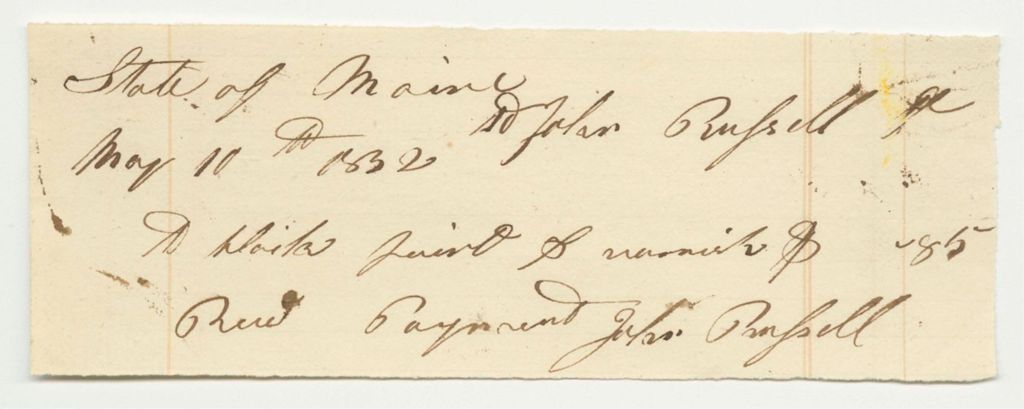 State of Maine
To John Russell Dr
May 10th 1832
To black paint & varnish $ .85
Recd Payment John Russell